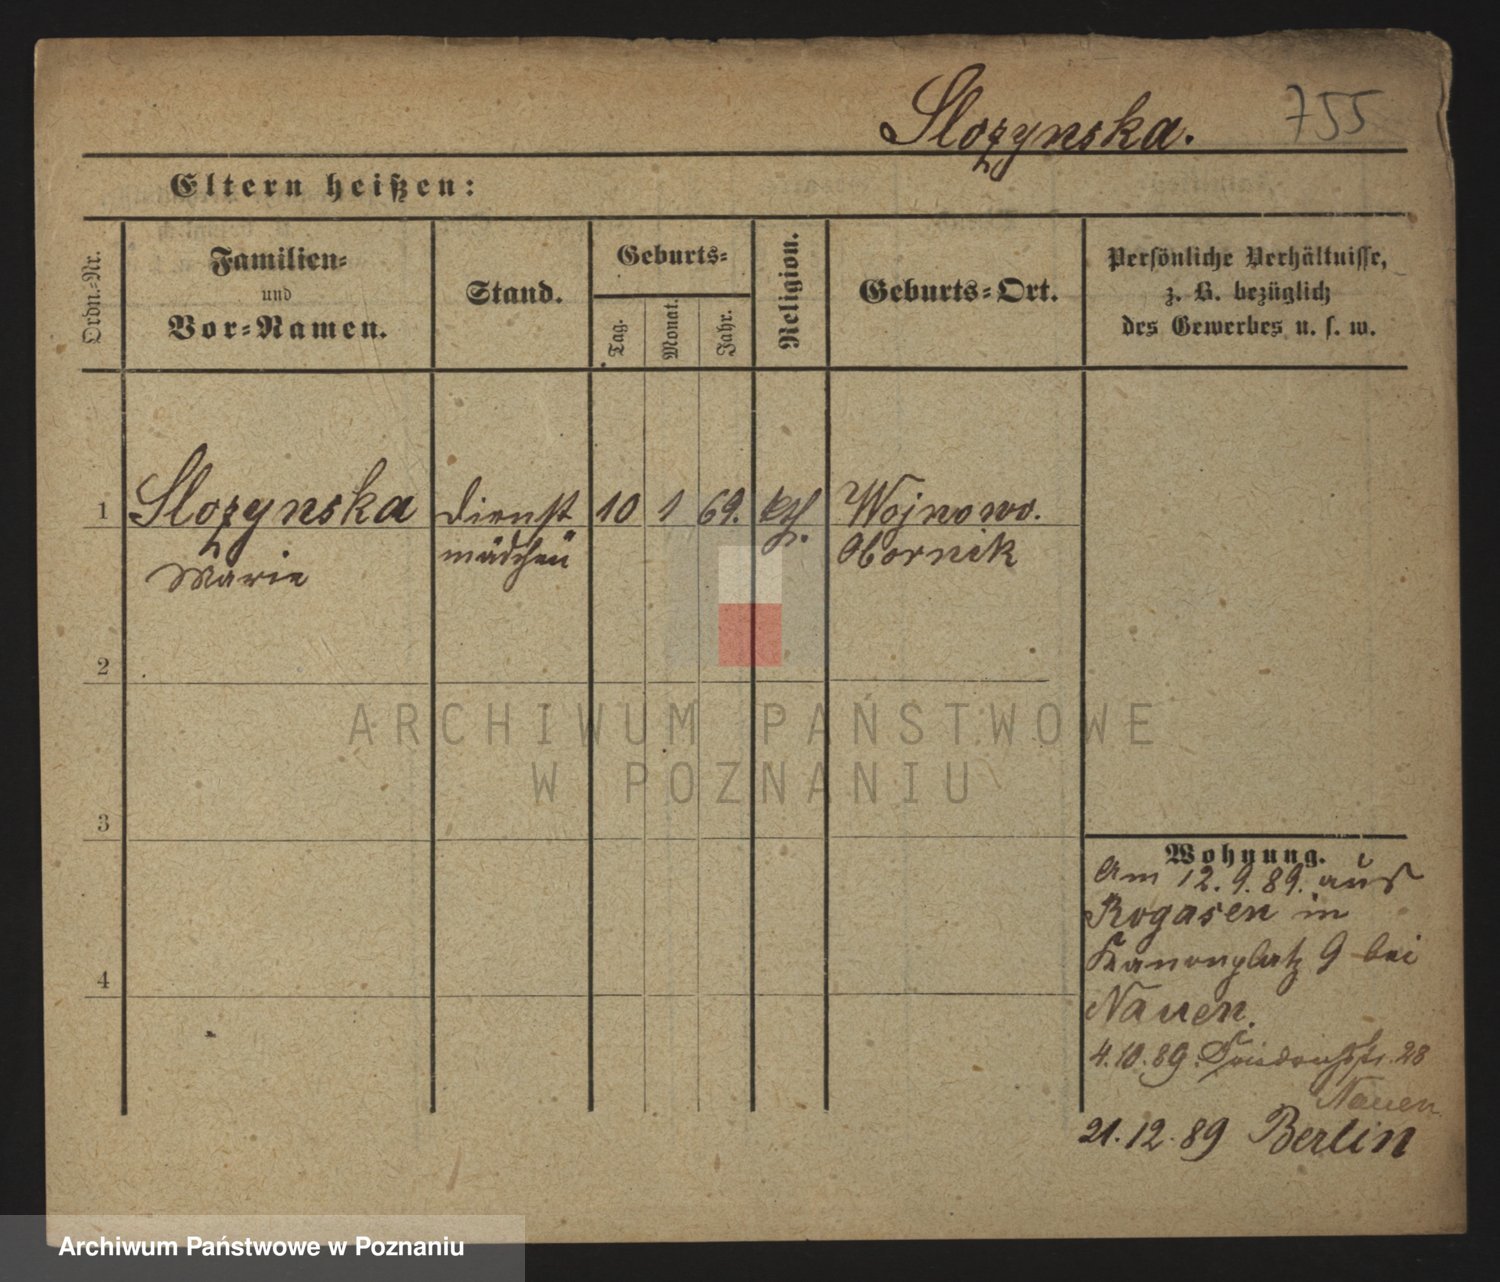 Slozynska. 755
Eltern heißen:
Ordn.-Nr.
Familien-
und
Vor-Namen.
Stand.
Geburts-
Tag.
Monat.
Jahr.
Religion.
Geburts-Ort.
Persönliche Verhältnisse,
z. B. bezüglich
des Gewerbes u. s. w.
1 Slozynska Dienst 10 1 69. kth. Wojnowo.
Marie mädchen Obornik
2
3
4
Wohnung.
Am 12.9.89. aus
Rogasen in
Kanonplatz 9 bei
Nauen.
4.10.89. Friedrichstr. 28
Nauen
21.12.89 Berlin
ARCHIWUM PAŃSTWOWE
W POZNANIU
Archiwum Państwowe w Poznaniu